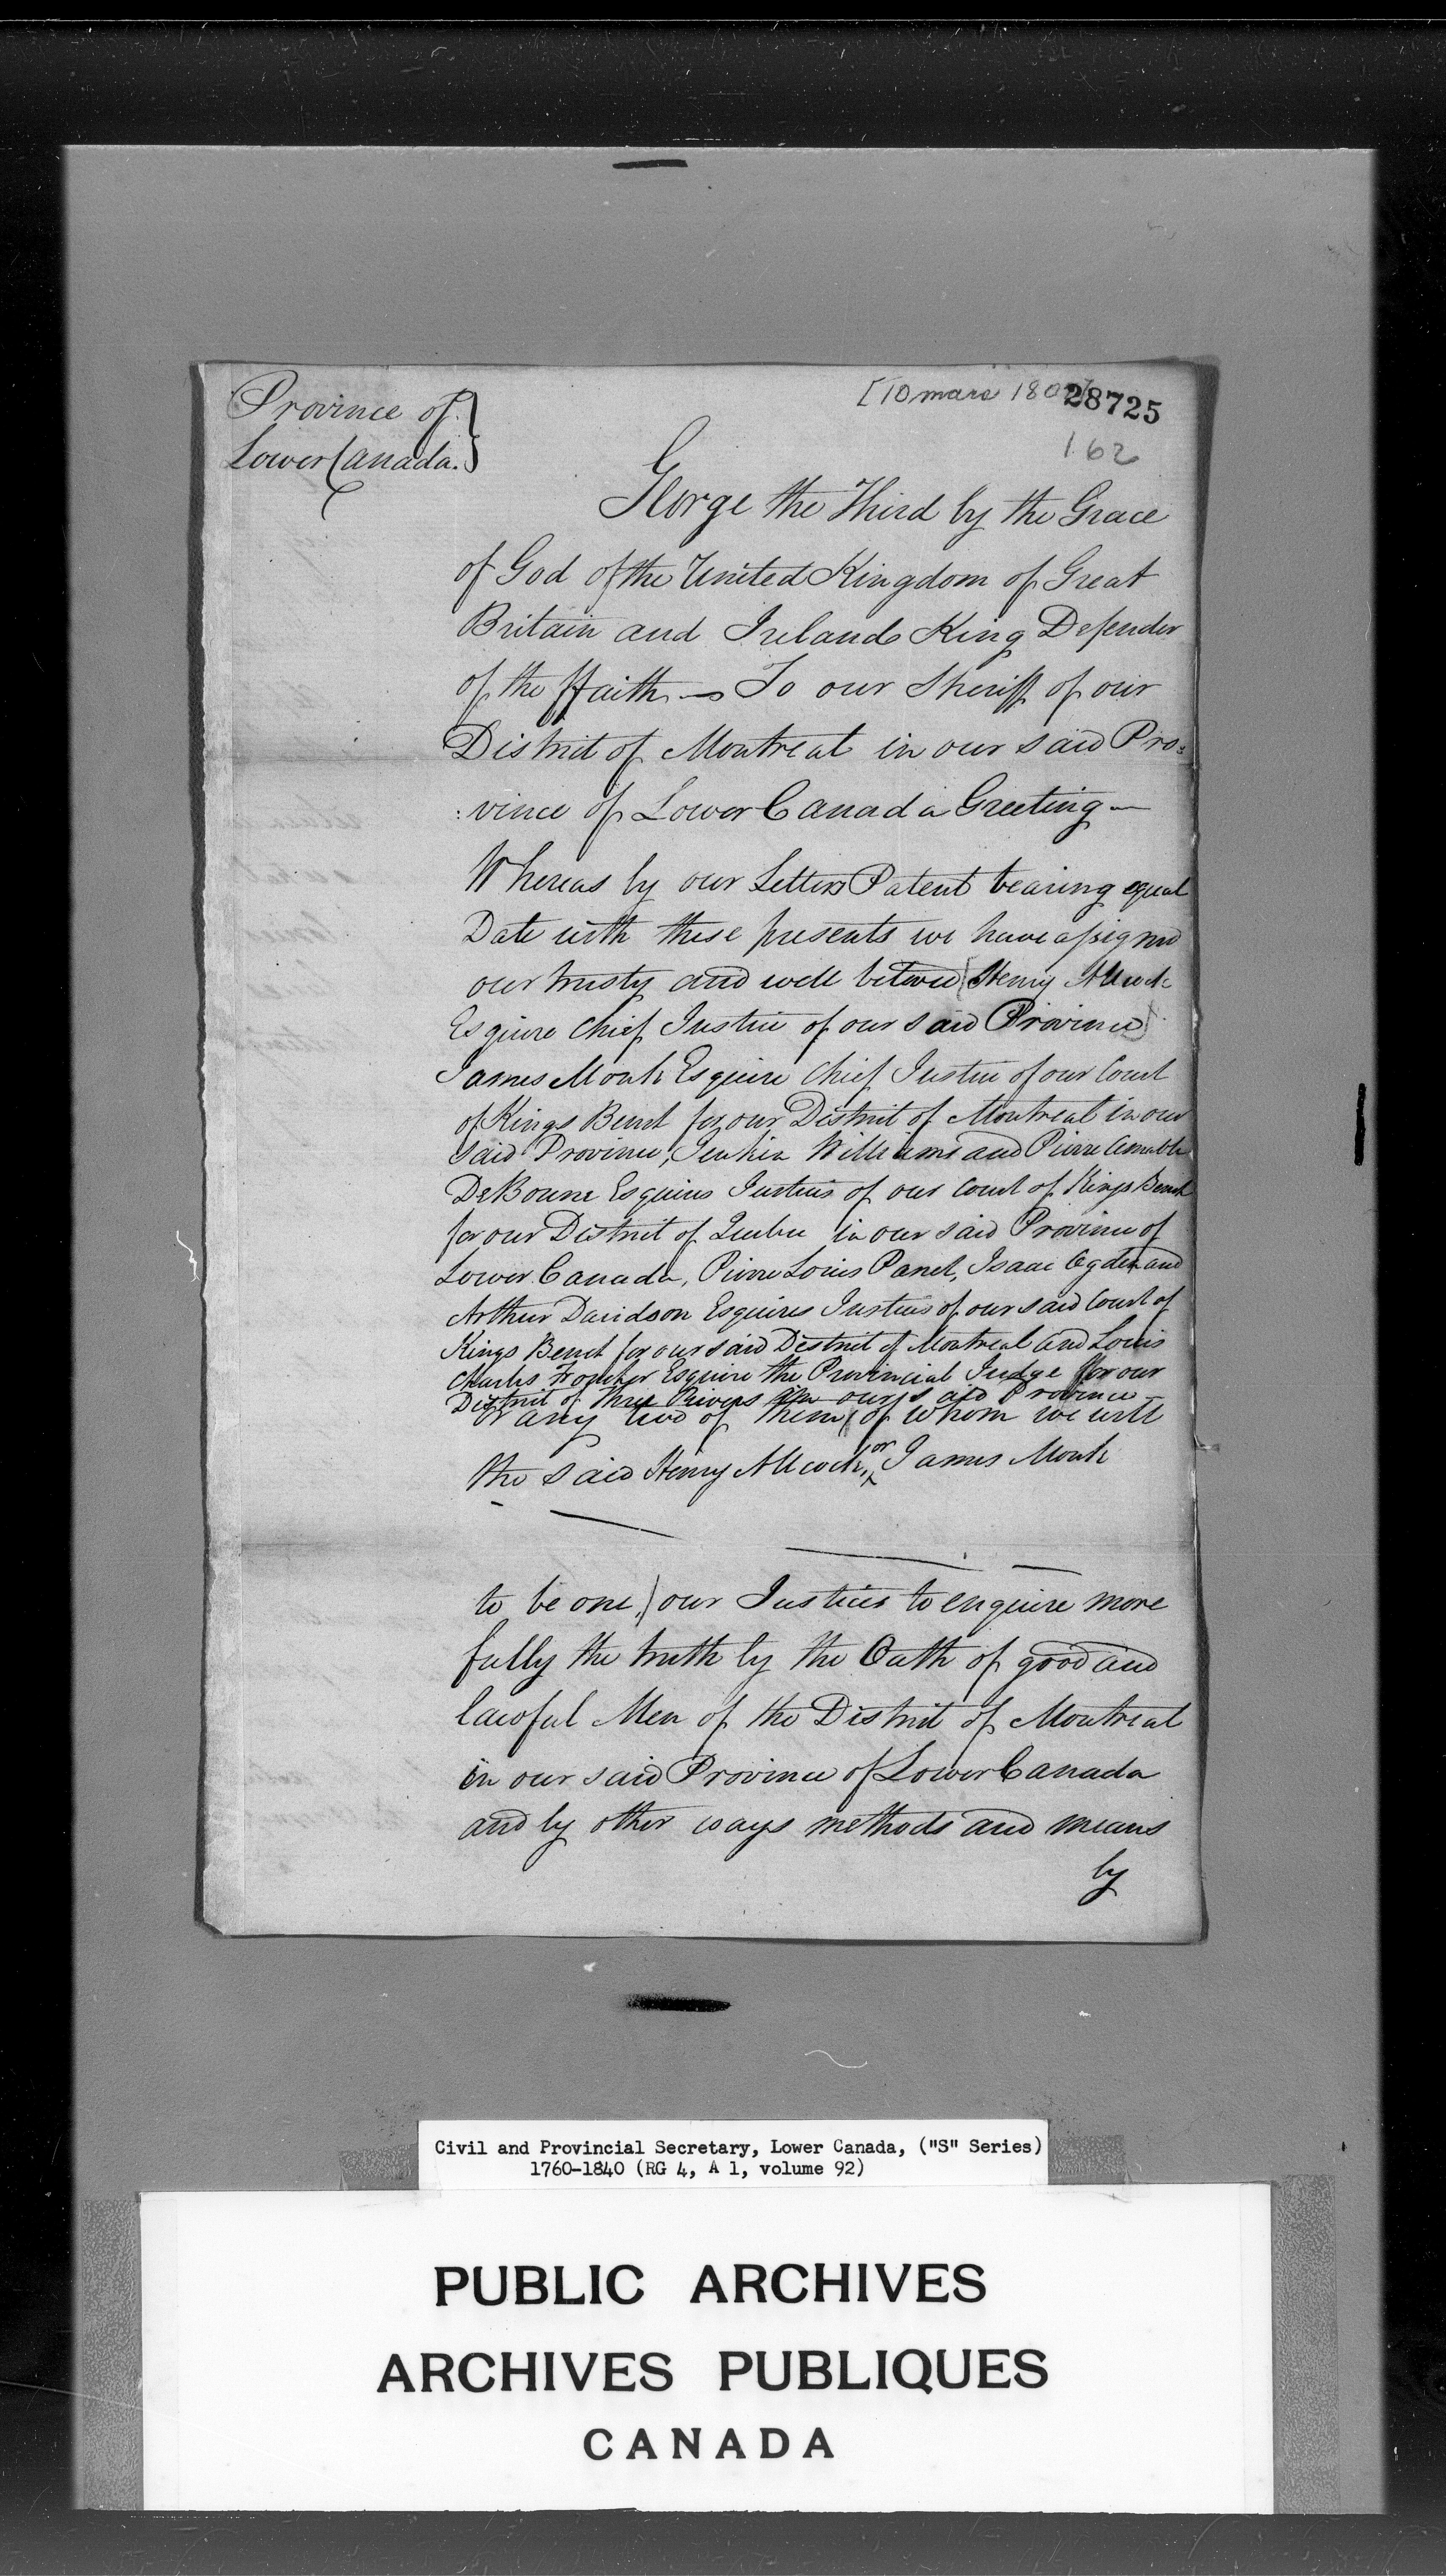 Province of
Lower Canada.
[10 mars 180
28725
162
George the Third by the Grace
of God of the United Kingdom of Great
Britain and Ireland King Defender
of the ffaith – To our Sheriff of our
District of Montreal in our said Pro:
:vince of Lower Canada Greeting –
Whereas by our Letters Patent bearing equal
Date with these presents we have assigned
our trusty and well beloved (Henry Allcock
Esquire Chief Justice of our said Province)
James Monk Esquire Chief Justice of our Court
of Kings Bench for our District of Montreal in our
said Province, Jenkin Williams and Pierre Amable
DeBonne Esquires Justices of our Court of Kings Bench
for our District of Quebec in our said Province of
Lower Canada, Pierre Louis Panet, Isaac Ogden and
Arthur Davidson Esquires Justices of our said Court of
Kings Bench for our said District of Montreal and Louis
Charles Foucher Esquire the Provincial Judge for our
District of Three Rivers in our said Province –
or any two of them (of whom we will
the said Henry Allcock, or James Monk
to be one,) our Justices to enquire more
fully the truth by the Oath of good and
lawful Men of the District of Montreal
in our said Province of Lower Canada
and by other ways methods and means
by
Civil and Provincial Secretary, Lower Canada, ("S" Series)
1760-1840 (RG 4, A 1, volume 92)
PUBLIC ARCHIVES
ARCHIVES PUBLIQUES
CANADA